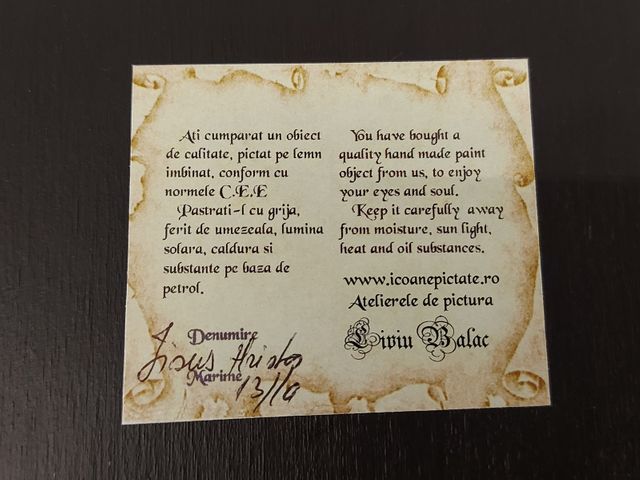 Ati cumparat un obiect
de calitate, pictat pe lemn
imbinat, conform cu
normele C.E.E
Pastrati-l cu grija,
ferit de umezeala, lumina
solara, caldura si
substante pe baza de
petrol.
Denumire
Iisus Hristos
Marime
13/10
You have bought a
quality hand made paint
object from us, to enjoy
your eyes and soul.
Keep it carefully away
from moisture, sun light,
heat and oil substances.
www.icoanepictate.ro
Atelierele de pictura
Liviu Balac